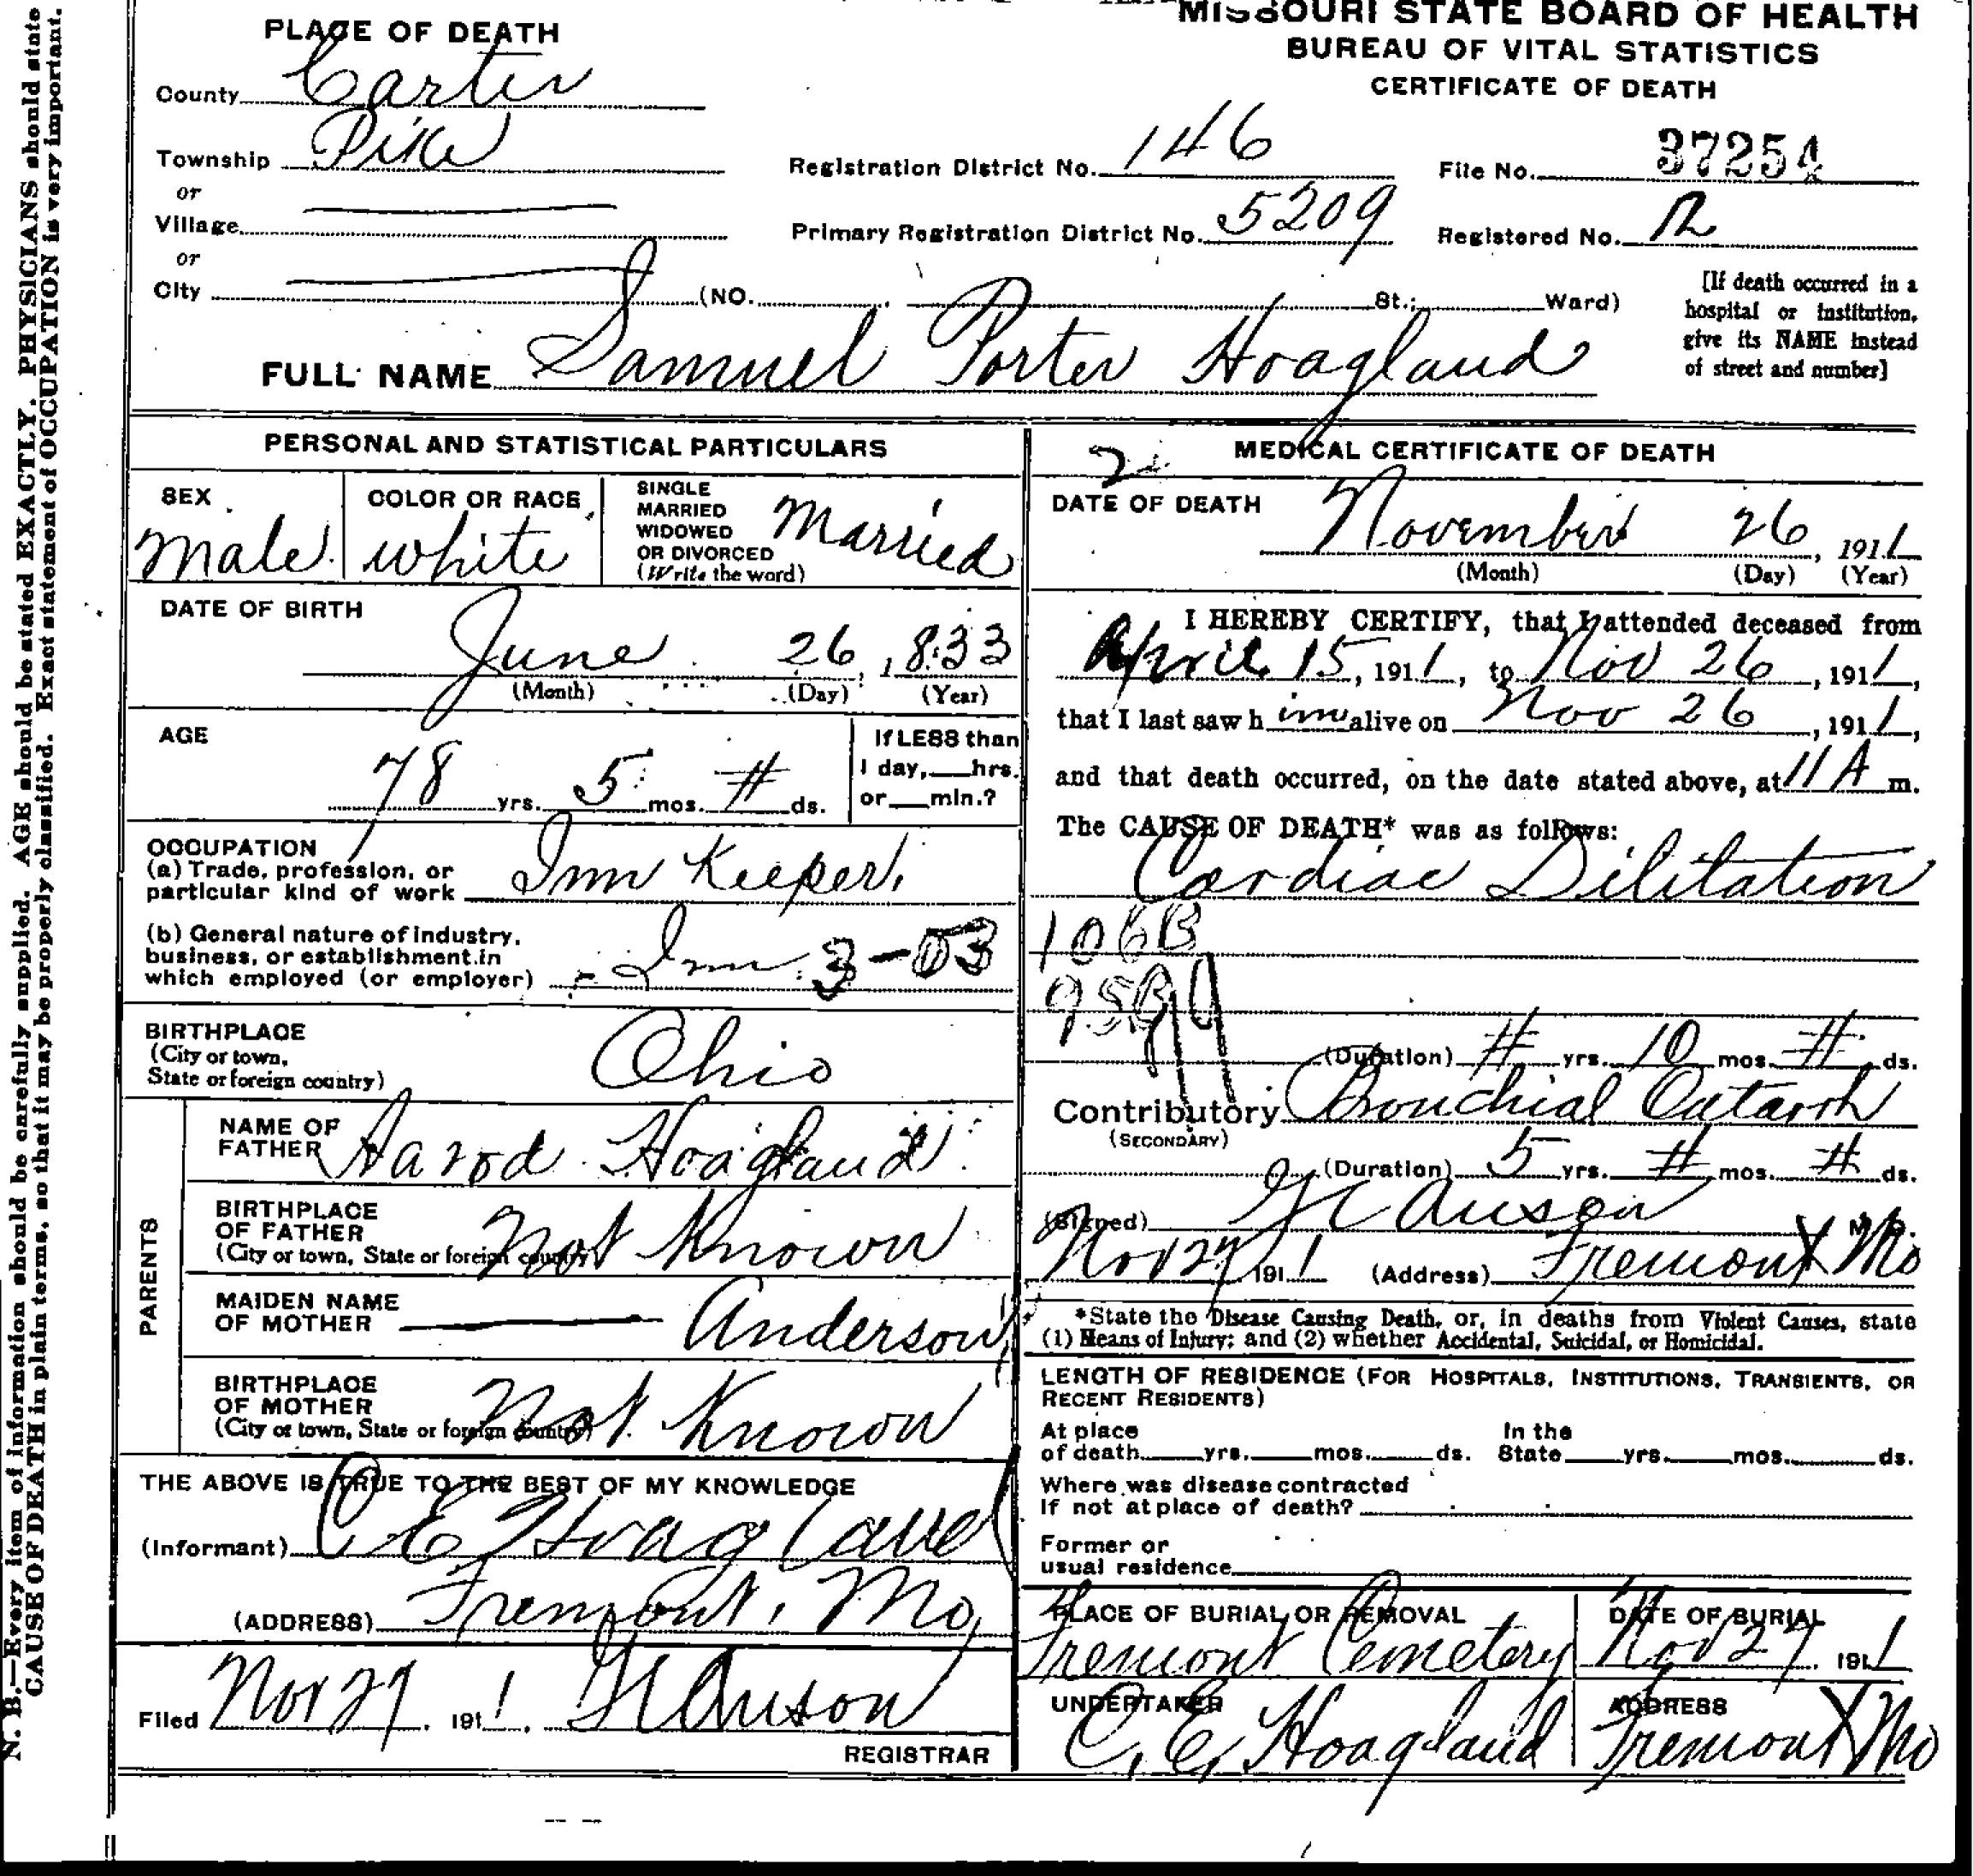 MISSOURI STATE BOARD OF HEALTH
BUREAU OF VITAL STATISTICS
CERTIFICATE OF DEATH
PLACE OF DEATH
County Carter
Township Pike
or
Village
or
City (NO. St.; Ward)
Registration District No. 146
File No. 37254
Primary Registration District No. 5209
Registered No. 12
[If death occurred in a
hospital or institution,
give its NAME instead
of street and number]
FULL NAME Samuel Porter Hoagland
PERSONAL AND STATISTICAL PARTICULARS
SEX
male
COLOR OR RACE
white
SINGLE
MARRIED
WIDOWED
OR DIVORCED
(Write the word)
Married
DATE OF BIRTH
June 26, 1833
(Month) (Day) (Year)
AGE
78 yrs. 5 mos. # ds.
If LESS than
1 day, hrs.
or min.?
OCCUPATION
(a) Trade, profession, or
particular kind of work Inn Keeper
(b) General nature of industry,
business, or establishment in
which employed (or employer) Inn 3-03
BIRTHPLACE
(City or town,
State or foreign country)
Ohio
PARENTS
NAME OF
FATHER Harod Hoagland
BIRTHPLACE
OF FATHER
(City or town, State or foreign country) Not Known
MAIDEN NAME
OF MOTHER Anderson
BIRTHPLACE
OF MOTHER
(City or town, State or foreign country) Not Known
THE ABOVE IS TRUE TO THE BEST OF MY KNOWLEDGE
(Informant) C E Hoagland
(ADDRESS) Fremont, Mo,
Filed Nov 27, 1911,
REGISTRAR
MEDICAL CERTIFICATE OF DEATH
2
DATE OF DEATH
November 26, 1911
(Month) (Day) (Year)
I HEREBY CERTIFY, that I attended deceased from
April 15, 1911, to Nov 26, 1911,
that I last saw him alive on Nov 26, 1911,
and that death occurred, on the date stated above, at 11 A m.
The CAUSE OF DEATH* was as follows:
Cardiac Dilitation
106B
95B
(Duration) # yrs. 10 mos. # ds.
Contributory Bronchial Catarrh
(SECONDARY)
(Duration) 5 yrs. # mos. # ds.
(Signed) M. D.
Nov 27, 1911 (Address) Fremont Mo
*State the Disease Causing Death, or, in deaths from Violent Causes, state
(1) Means of Injury; and (2) whether Accidental, Suicidal, or Homicidal.
LENGTH OF RESIDENCE (FOR HOSPITALS, INSTITUTIONS, TRANSIENTS, OR
RECENT RESIDENTS)
At place
of death yrs. mos. ds.
In the
State yrs. mos. ds.
Where was disease contracted
if not at place of death?
Former or
usual residence
PLACE OF BURIAL OR REMOVAL
Fremont Cemetery
DATE OF BURIAL
Nov 27 1911
UNDERTAKER
C. E. Hoagland
ADDRESS
Fremont Mo
N. B.—Every item of information should be carefully supplied. AGE should be stated EXACTLY. PHYSICIANS should state
CAUSE OF DEATH in plain terms, so that it may be properly classified. Exact statement of OCCUPATION is very important.